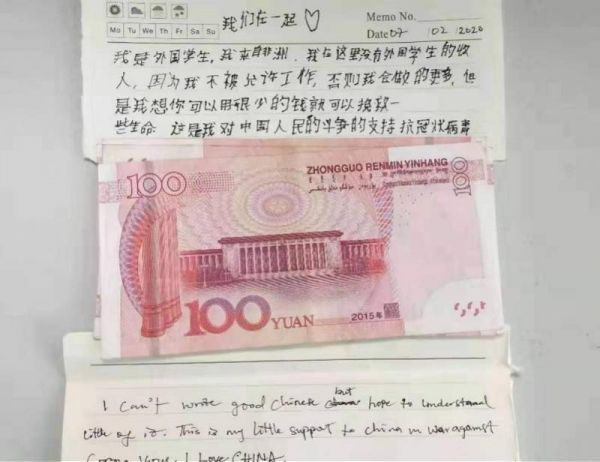 Mo Tu We Th Fr Sa Su
我们在一起♡
Memo No.
Date 07 / 02 / 2020
我是外国学生,我来自非洲.我在这里没有外国学生的收
人,因为我不被允许工作,否则我会做的更多,但
是我想你可以用很少的钱就可以换救一
些生命.这是我对中国人民的斗争的支持抗冠状病毒
100
ZHONGGUO RENMIN YINHANG
100
100 YUAN
2015年
I can't wrote good chinese but hope to understand
little of it. This is my little support to china in war against
Corona Virus. I Love CHINA.